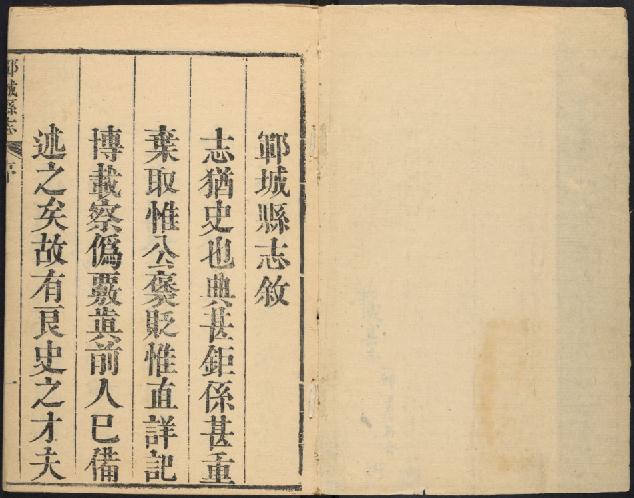 鄆城縣志敘
志猶史也典甚鉅係甚重
棄取惟公褒貶惟直詳記
博載察僞覈眞前人已備
述之矣故有良史之才夫
鄆城縣志
序
一